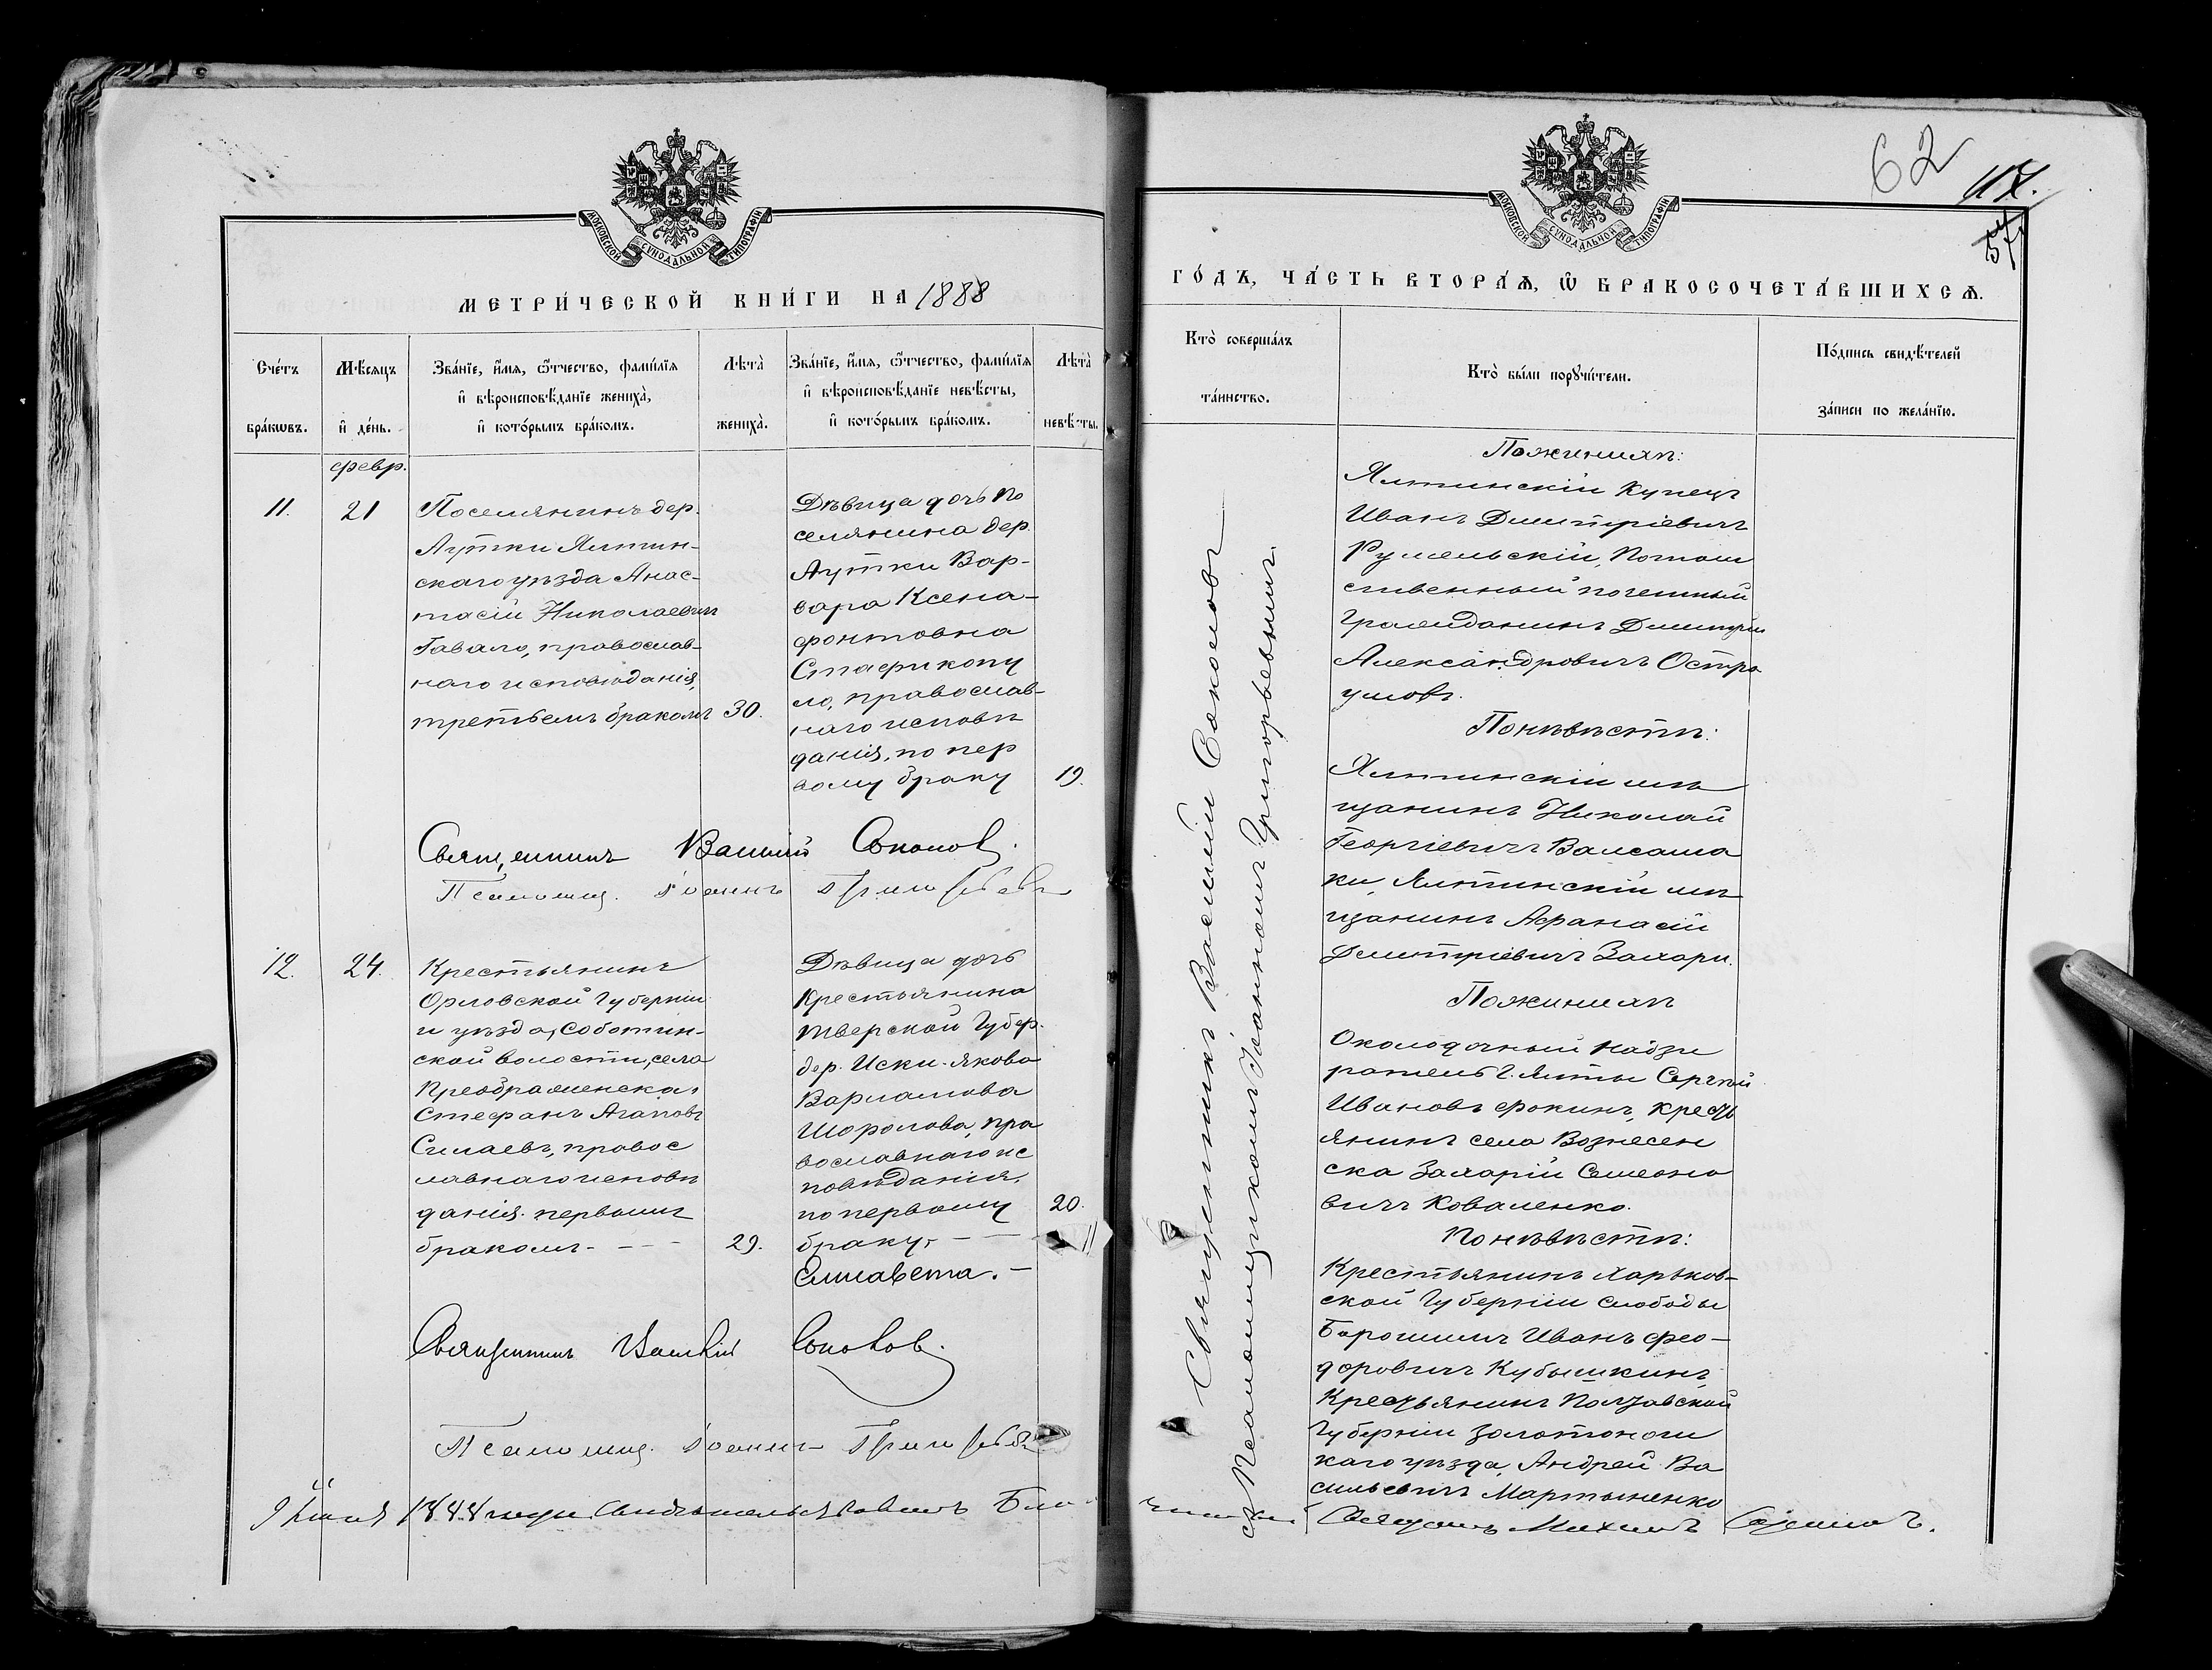 МОСКОВСКОЙ СУНОДАЛЬНОЙ ТИПОГРАФІИ
МЕТРИ́ЧЕСКОЙ КНИ́ГИ НА 1888
Сче́тъ бра́кѡвъ.
Мѣ́сяцъ и҆ де́нь.
Зва́нїе, и҆́мѧ, ѻ҆́тчество, фами́лїѧ
и҆ вѣроисповѣ́данїе жениха̀,
и҆ кото́рымъ бра́комъ.
Лѣта̀ жениха̀.
Зва́нїе, и҆́мѧ, ѻ҆́тчество, фами́лїѧ
и҆ вѣроисповѣ́данїе невѣ́сты,
и҆ кото́рымъ бра́комъ.
Лѣта̀ невѣ́сты.
февр.
11.
21
Поселянинъ дер.
Аутки Ялтин-
скаго уѣзда Анас-
тасій Николаевичъ
Гавало, православ-
наго исповѣданія,
третьемъ бракомъ
30.
Дѣвица дочь по
селянина дер.
Аутки Вар-
вара Ксено-
фонтовна
Стафикопу
ло, православ-
наго исповѣ
данія, по пер
вому браку
19.
Священникъ Василій Соколов.
Псаломщ. Іоаннъ Григорьевъ
12.
24.
Крестьянинъ
Орловской Губерніи
и уѣзда, Соботин-
ской волости, села
Преображенска,
Стефанъ Агаповъ
Силаевъ, правос
лавнаго исповѣ
данія. первымъ
бракомъ - - -
29.
Дѣвица дочь
Крестьянина
Тверской Губер.
дер. Иски. Якова
Варламова
Шоролова, пра
вославнаго ис
повѣданія,
по первому
браку, - -
Елисавета. -
20.
Священникъ Василій Соколов.
Псаломщ. Іоаннъ Григорьевъ
9 1888 года Свидѣтельствовалъ Благочинный Священ. Михаилъ
62
МОСКОВСКОЙ СУНОДАЛЬНОЙ ТИПОГРАФІИ
ГО́ДЪ, ЧА́СТЬ ВТОРА́Ѧ, Ѽ БРАКОСОЧЕТА́ВШИХСѦ.
Кто̀ соверша́лъ та́инство.
Кто̀ бы́ли порꙋчи́тели.
По́дпись свидѣ́телей за́писи по жела́нїю.
Священникъ Василій Соколовъ
съ Псаломщикомъ Іоанномъ Григорьевымъ.
По женихѣ:
Ялтинскій Купецъ
Иванъ Димитріевичъ
Румельскій, Потом
ственный почетный
Гражданинъ Димитрій
Александровичъ Остро
умовъ.
По невѣстѣ:
Ялтинскій мѣ
щанинъ Николай
Георгіевичъ Валсама
ки, Ялтинскій мѣ
щанинъ Афанасій
Димитріевичъ Захари.
По женихѣ
Околодочный надзи
ратель г. Ялты Сергѣй
Ивановъ Фокинъ, Кресть
янинъ села Вознесен
ска Захарій Симеоно
вичъ Коваленко.
По невѣстѣ:
Крестьянинъ Харьков-
ской Губерніи слободы
Боромли Иванъ Фео-
доровичъ Кубышкинъ,
Крестьянинъ Полтавской
Губерніи Золотонош
каго уѣзда, Андрей Ва
сильевичъ Мартыненко